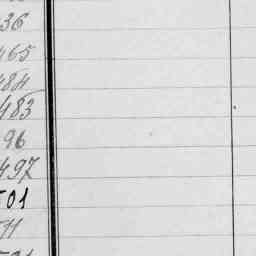 36
465
484
483
96
497
501
511
521